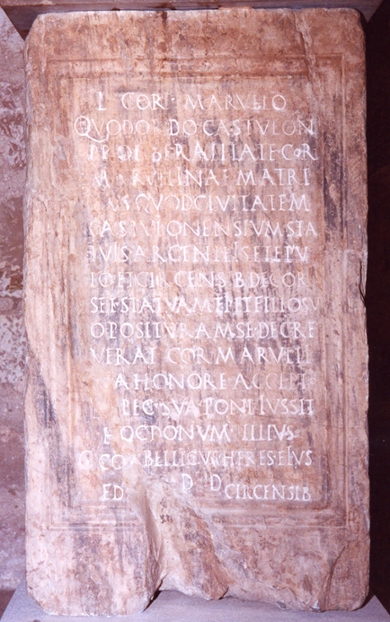 L COR · MARVLLO
QVOD O DO CASTVLON
COR
MARVLLINAE MATRI
QVOD CIVITATEM
CASTVLONENSIVM STA
TVIS ARGENTEIS ET EPV
CIRCENSIB DECOR
SET STATVAM ET FILIO SV
O POSITVRAM SE DECRE
VERAT COR MARVLLI
HONORE ACCEPT
PEC · SVA PONI IVSSIT
DONVM · ILLIVS
COR BELLICVS HERES EIVS
ED D D CIRCENSIB